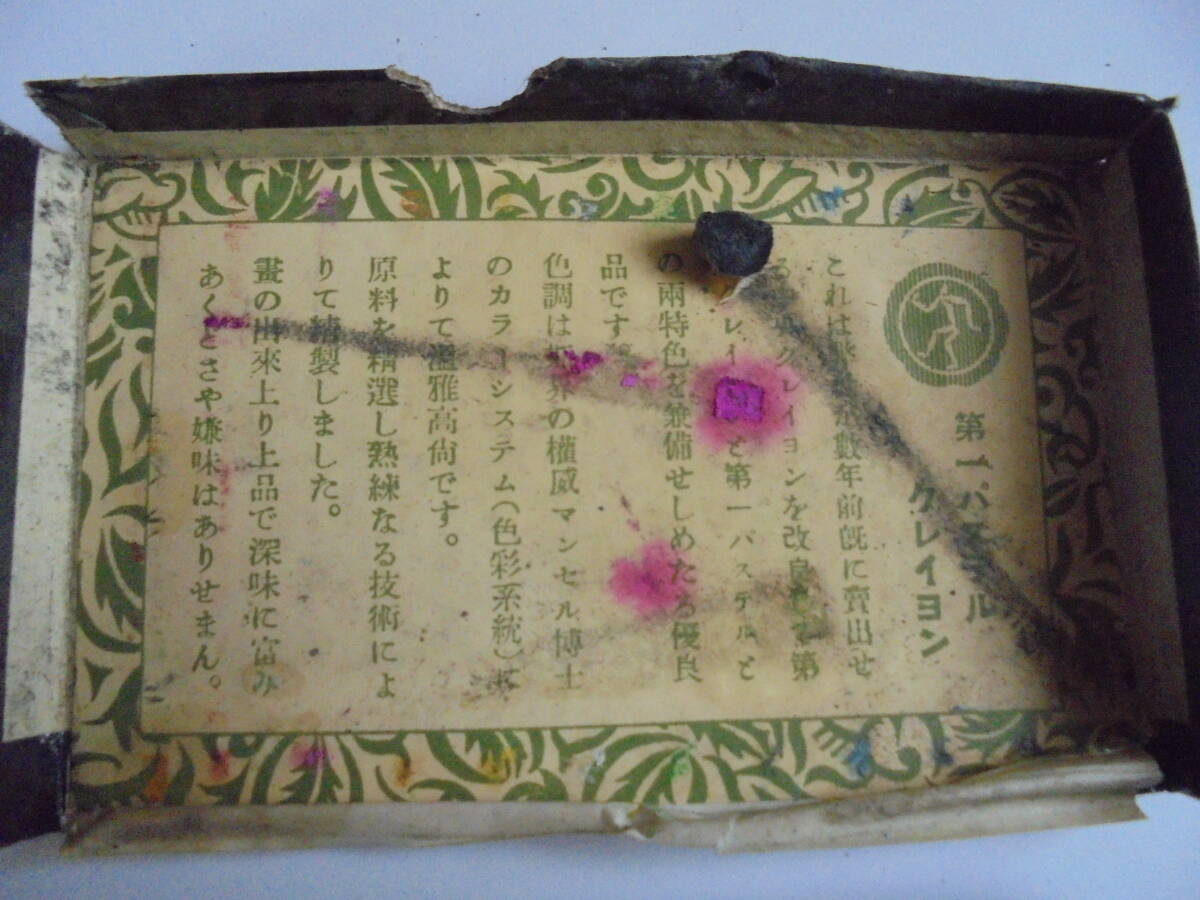 第一パステル
クレイヨン
これは 数年前既に賣出せ
る クレイヨンを改良して第
レイヨンと第一パステルと
の兩特色を兼備せしめたる優良
品です
色調は 界の權威マンセル博士
のカラーシステム(色彩系統)に
よりて溫雅高尙です。
原料を精選し熟練なる技術によ
りて精製しました。
畫の出來上り上品で深味に富み
あくどさや嫌味はありせまん。